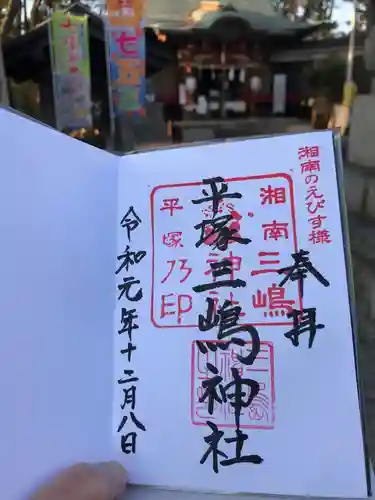 湘南のえびす様
奉拝
平塚三嶋神社
令和元年十二月八日
湘南三嶋
神社
平塚乃印